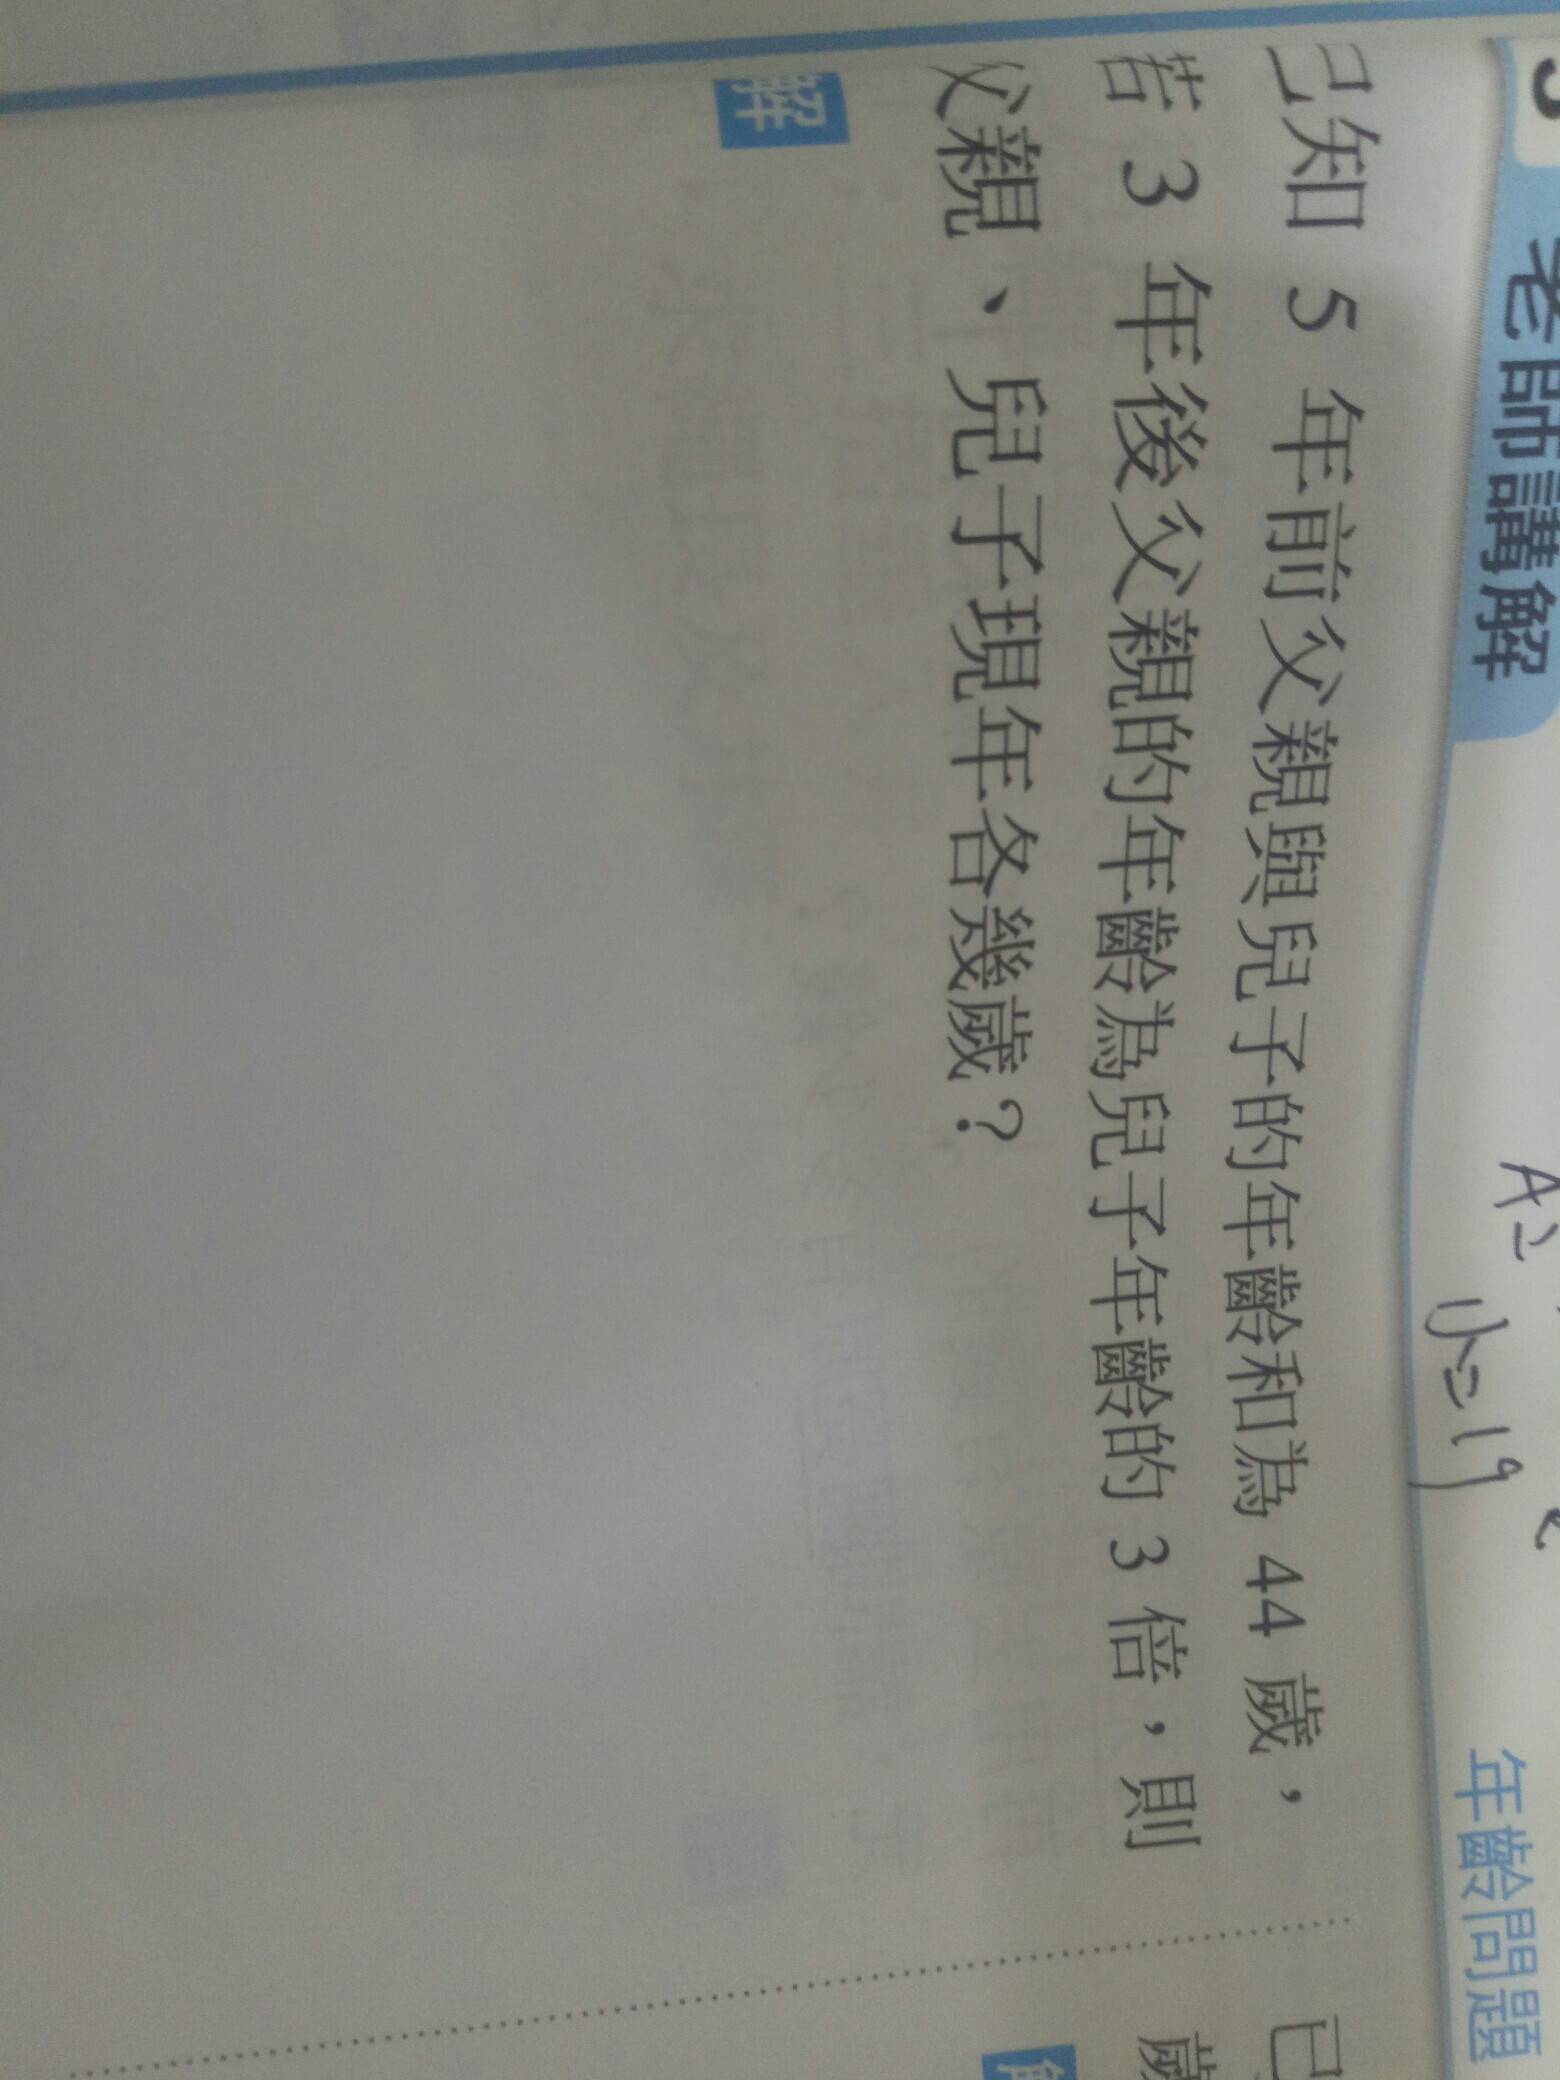 老師講解
年齡問題
小=19
已知 5 年前父親與兒子的年齡和為 44 歲，
若 3 年後父親的年齡為兒子年齡的 3 倍，則
父親、兒子現年各幾歲？
解